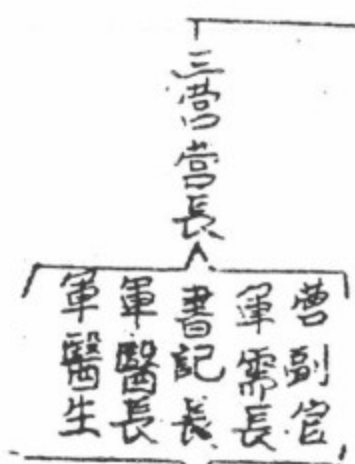 三营营長
营副官
軍需長
書記長
軍醫長
軍醫生